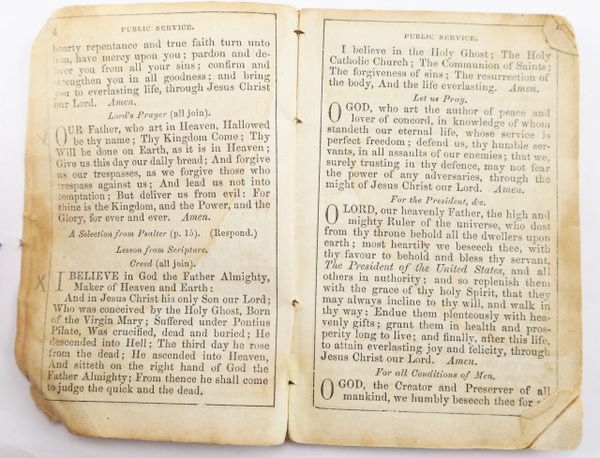 4
PUBLIC SERVICE.
hearty repentance and true faith turn unto
him, have mercy upon you; pardon and de-
liver you from all your sins; confirm and
strengthen you in all goodness; and bring
you to everlasting life, through Jesus Christ
our Lord. Amen.
Lord's Prayer (all join).
OUR Father, who art in Heaven, Hallowed
be thy name; Thy Kingdom Come; Thy
Will be done on Earth, as it is in Heaven;
Give us this day our daily bread; And forgive
us our trespasses, as we forgive those who
trespass against us; And lead us not into
temptation; But deliver us from evil: For
thine is the Kingdom, and the Power, and the
Glory, for ever and ever. Amen.
A Selection from Psalter (p. 15). (Respond.)
Lesson from Scripture.
Creed (all join).
X I BELIEVE in God the Father Almighty,
Maker of Heaven and Earth:
And in Jesus Christ his only Son our Lord;
Who was conceived by the Holy Ghost, Born
of the Virgin Mary; Suffered under Pontius
Pilate, Was crucified, dead and buried; He
descended into Hell; The third day he rose
from the dead; He ascended into Heaven,
And sitteth on the right hand of God the
Father Almighty; From thence he shall come
to judge the quick and the dead.
PUBLIC SERVICE.
I believe in the Holy Ghost; The Holy
Catholic Church; The Communion of Saints;
The forgiveness of sins; The resurrection of
the body, And the life everlasting. Amen.
Let us Pray.
O GOD, who art the author of peace and
lover of concord, in knowledge of whom
standeth our eternal life, whose service is
perfect freedom; defend us, thy humble ser-
vants, in all assaults of our enemies; that we,
surely trusting in thy defence, may not fear
the power of any adversaries, through the
might of Jesus Christ our Lord. Amen.
For the President, &c.
O LORD, our heavenly Father, the high and
mighty Ruler of the universe, who dost
from thy throne behold all the dwellers upon
earth; most heartily we beseech thee, with
thy favour to behold and bless thy servant,
The President of the United States, and all
others in authority; and so replenish them
with the grace of thy holy Spirit, that they
may always incline to thy will, and walk in
thy way: Endue them plenteously with hea-
venly gifts; grant them in health and pros-
perity long to live; and finally, after this life,
to attain everlasting joy and felicity, through
Jesus Christ our Lord. Amen.
For all Conditions of Men.
O GOD, the Creator and Preserver of all
mankind, we humbly beseech thee for